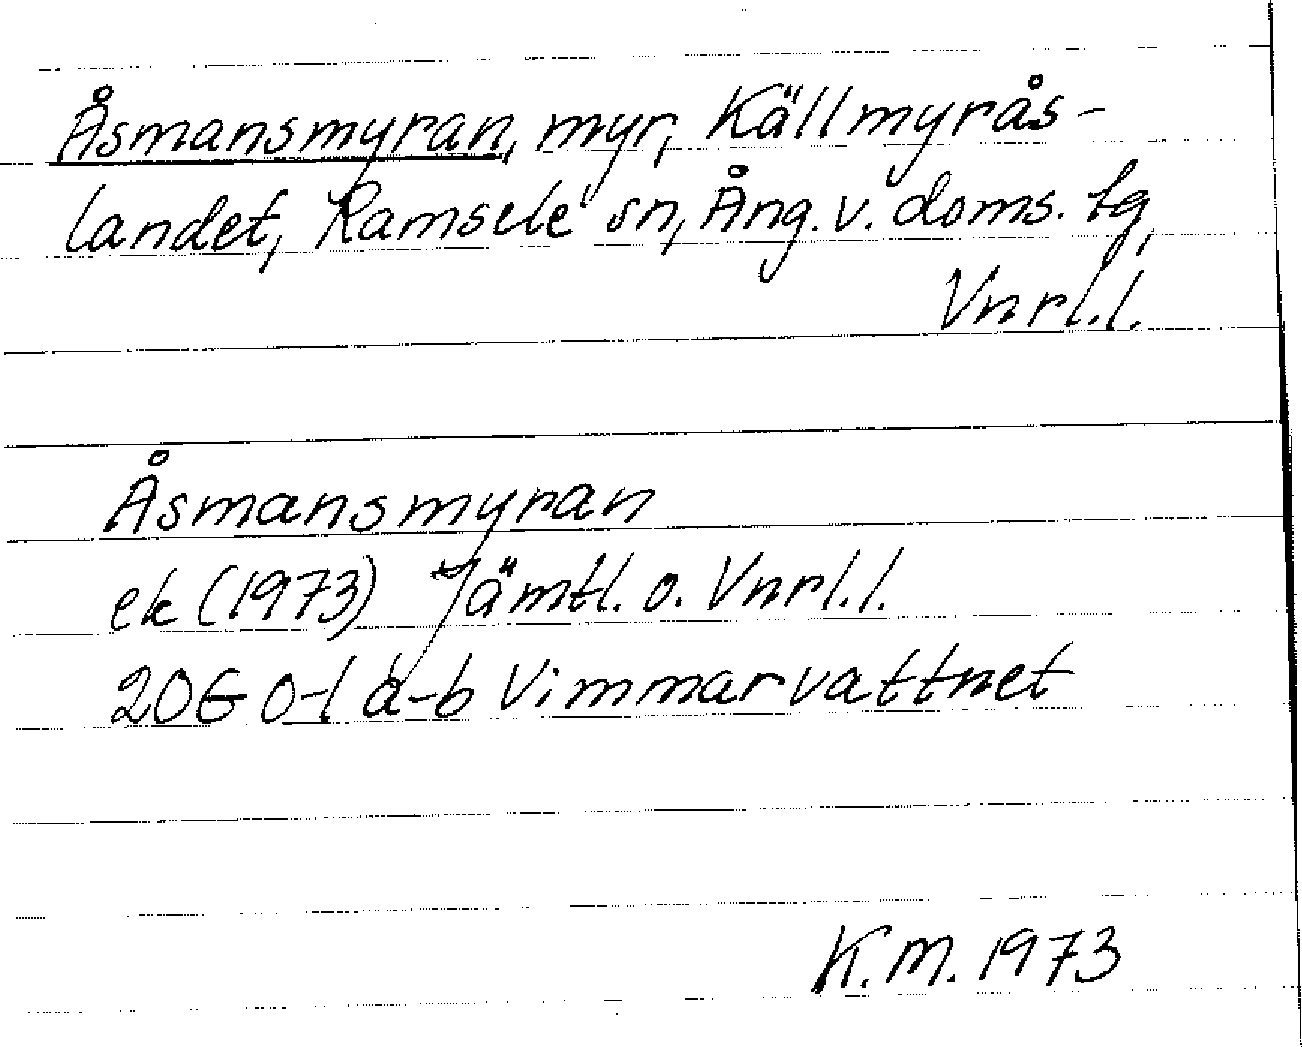 Åsmansmyran, myr, Källmyrås-
landet, Ramsele sn, Ång. v. doms. tg,
Vnrl.l.
Åsmansmyran
ek (1973) Jämtl. o. Vnrl.l.
20G 0-1 a-b Vimmarvattnet
K.M. 1973